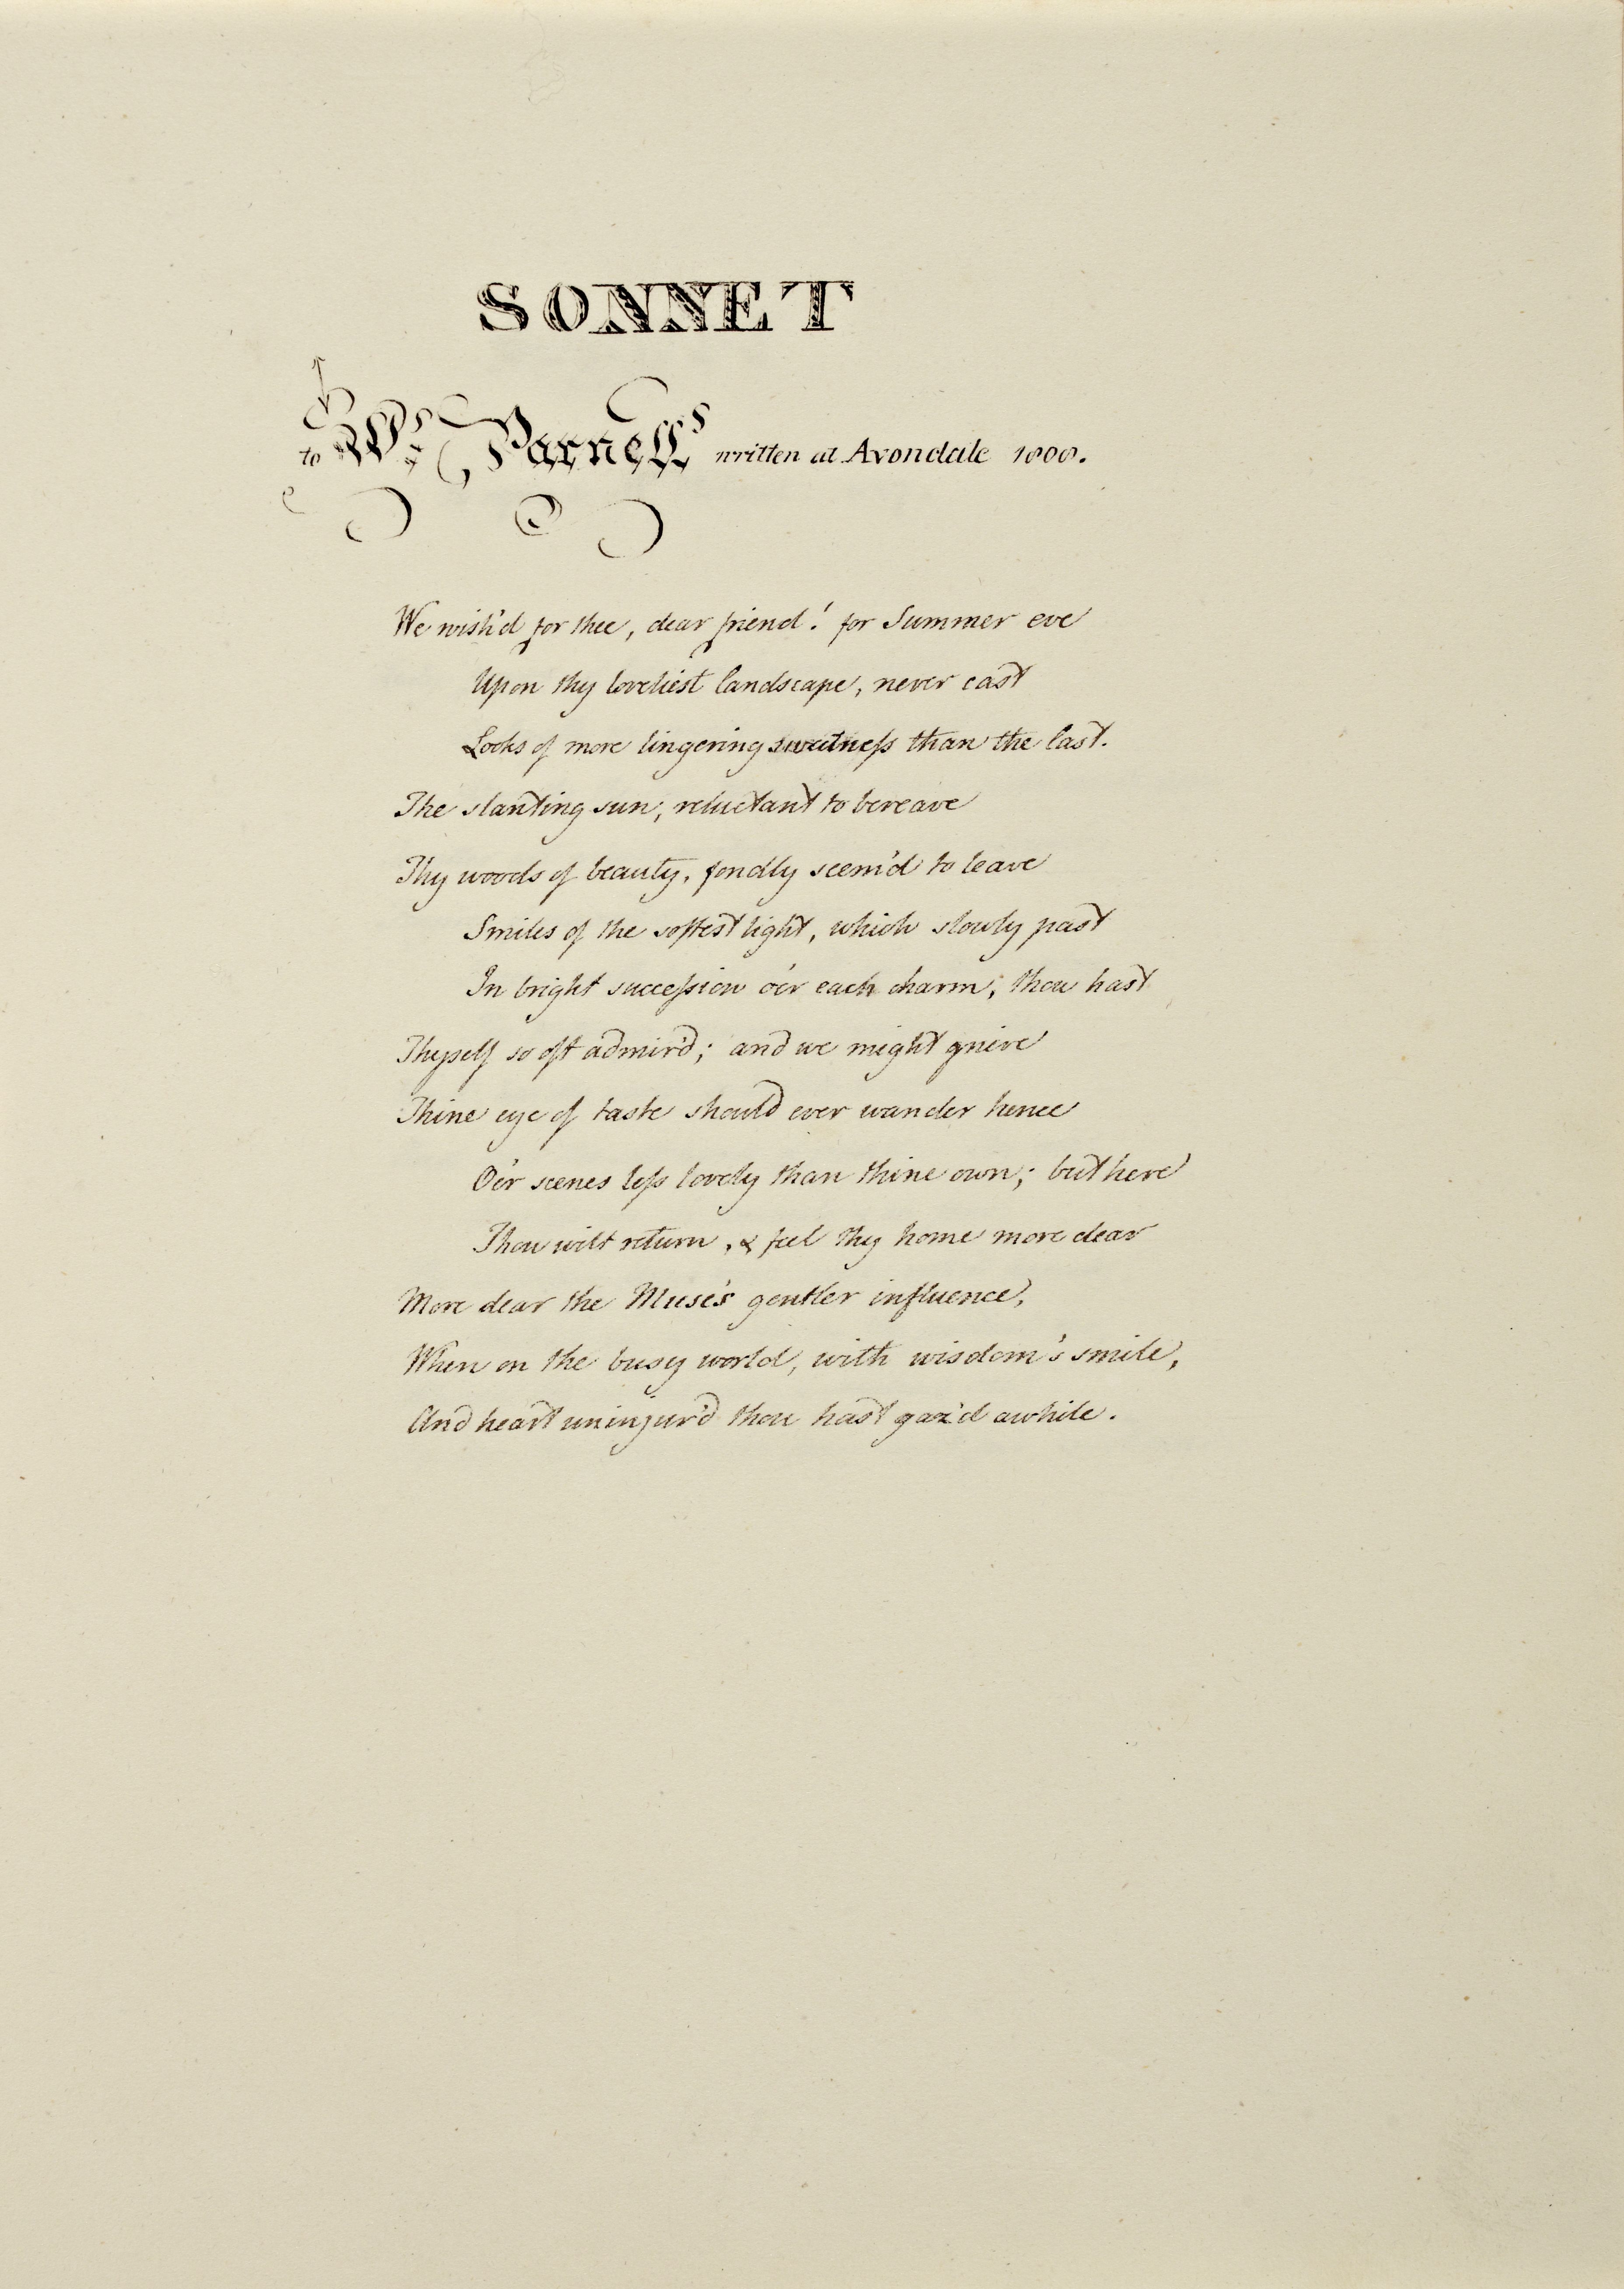 SONNET
to Parnell written at Avondale 1808.
We wish'd for thee, dear friend! for Summer eve
Upon thy loveliest landscape, never cast
Looks of more lingering sweetness than the last.
The slanting sun, reluctant to bereave
Thy woods of beauty, fondly seem'd to leave
Smiles of the softest light, which slowly past
In bright succession o'er each charm, thou hast
Thyself so oft admir'd; and we might grieve
Thine eye of taste should ever wander hence
O'er scenes less lovely than thine own; but here
Thou wilt return, & feel thy home more dear
More dear the Muse's gentler influence,
When on the busy world, with wisdom's smile,
And heart uninjur'd thou hast gaz'd awhile.